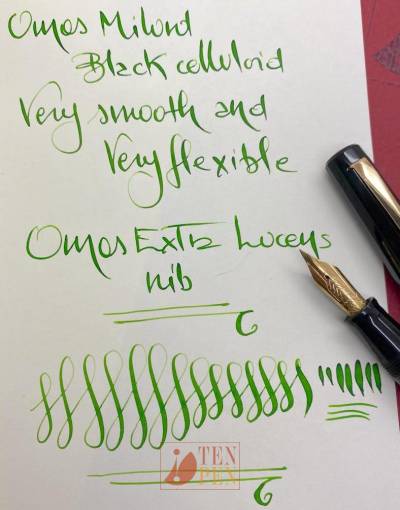 Omas Milord
Black celluloid
Very smooth and
Very flexible
Omas Extra Lucens
nib
TEN
PEN